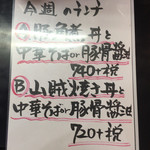 今週のランチ
Ⓐ豚角煮丼と
中華そばor豚骨醤油
740+税
Ⓑ山賊焼き丼と
中華そばor豚骨醤油
720+税